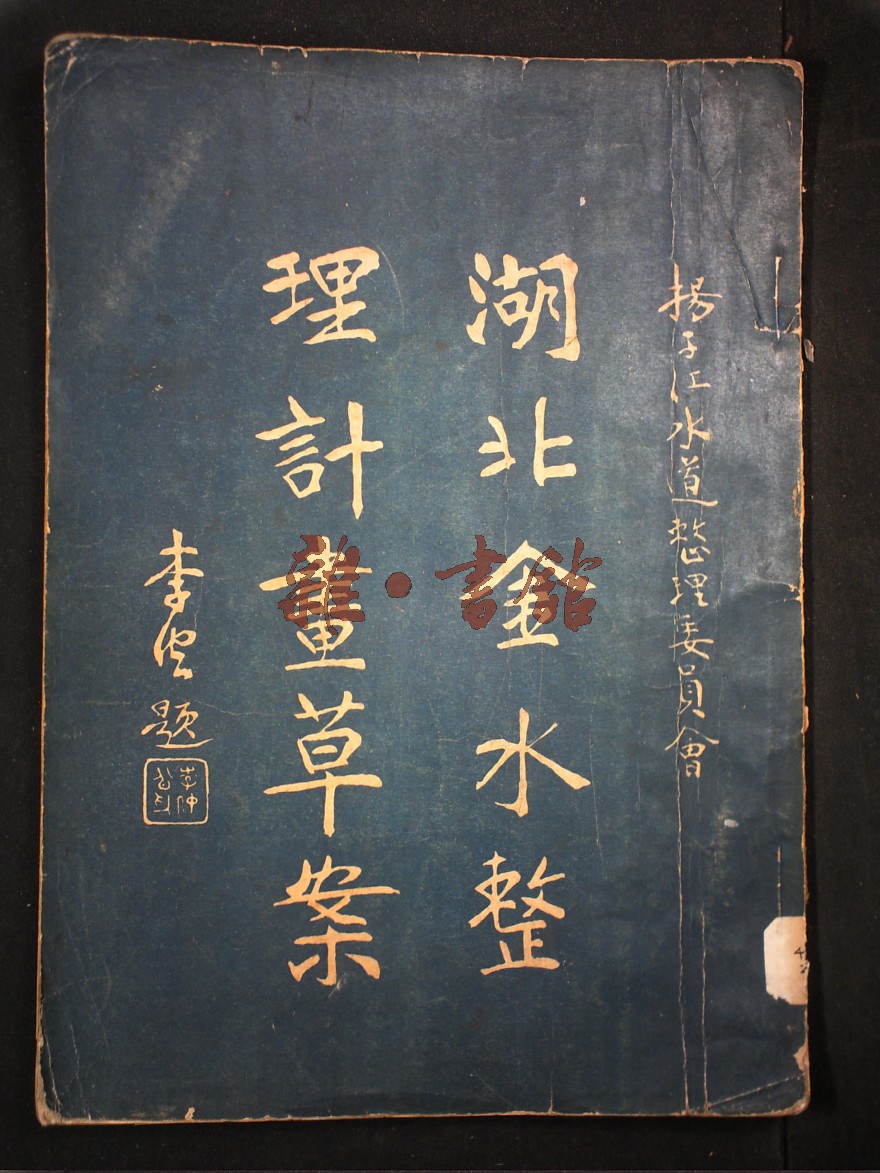 揚子江水道整理委員會
湖北金水整
理計畫草案
李題
李仲公印
雜·書館